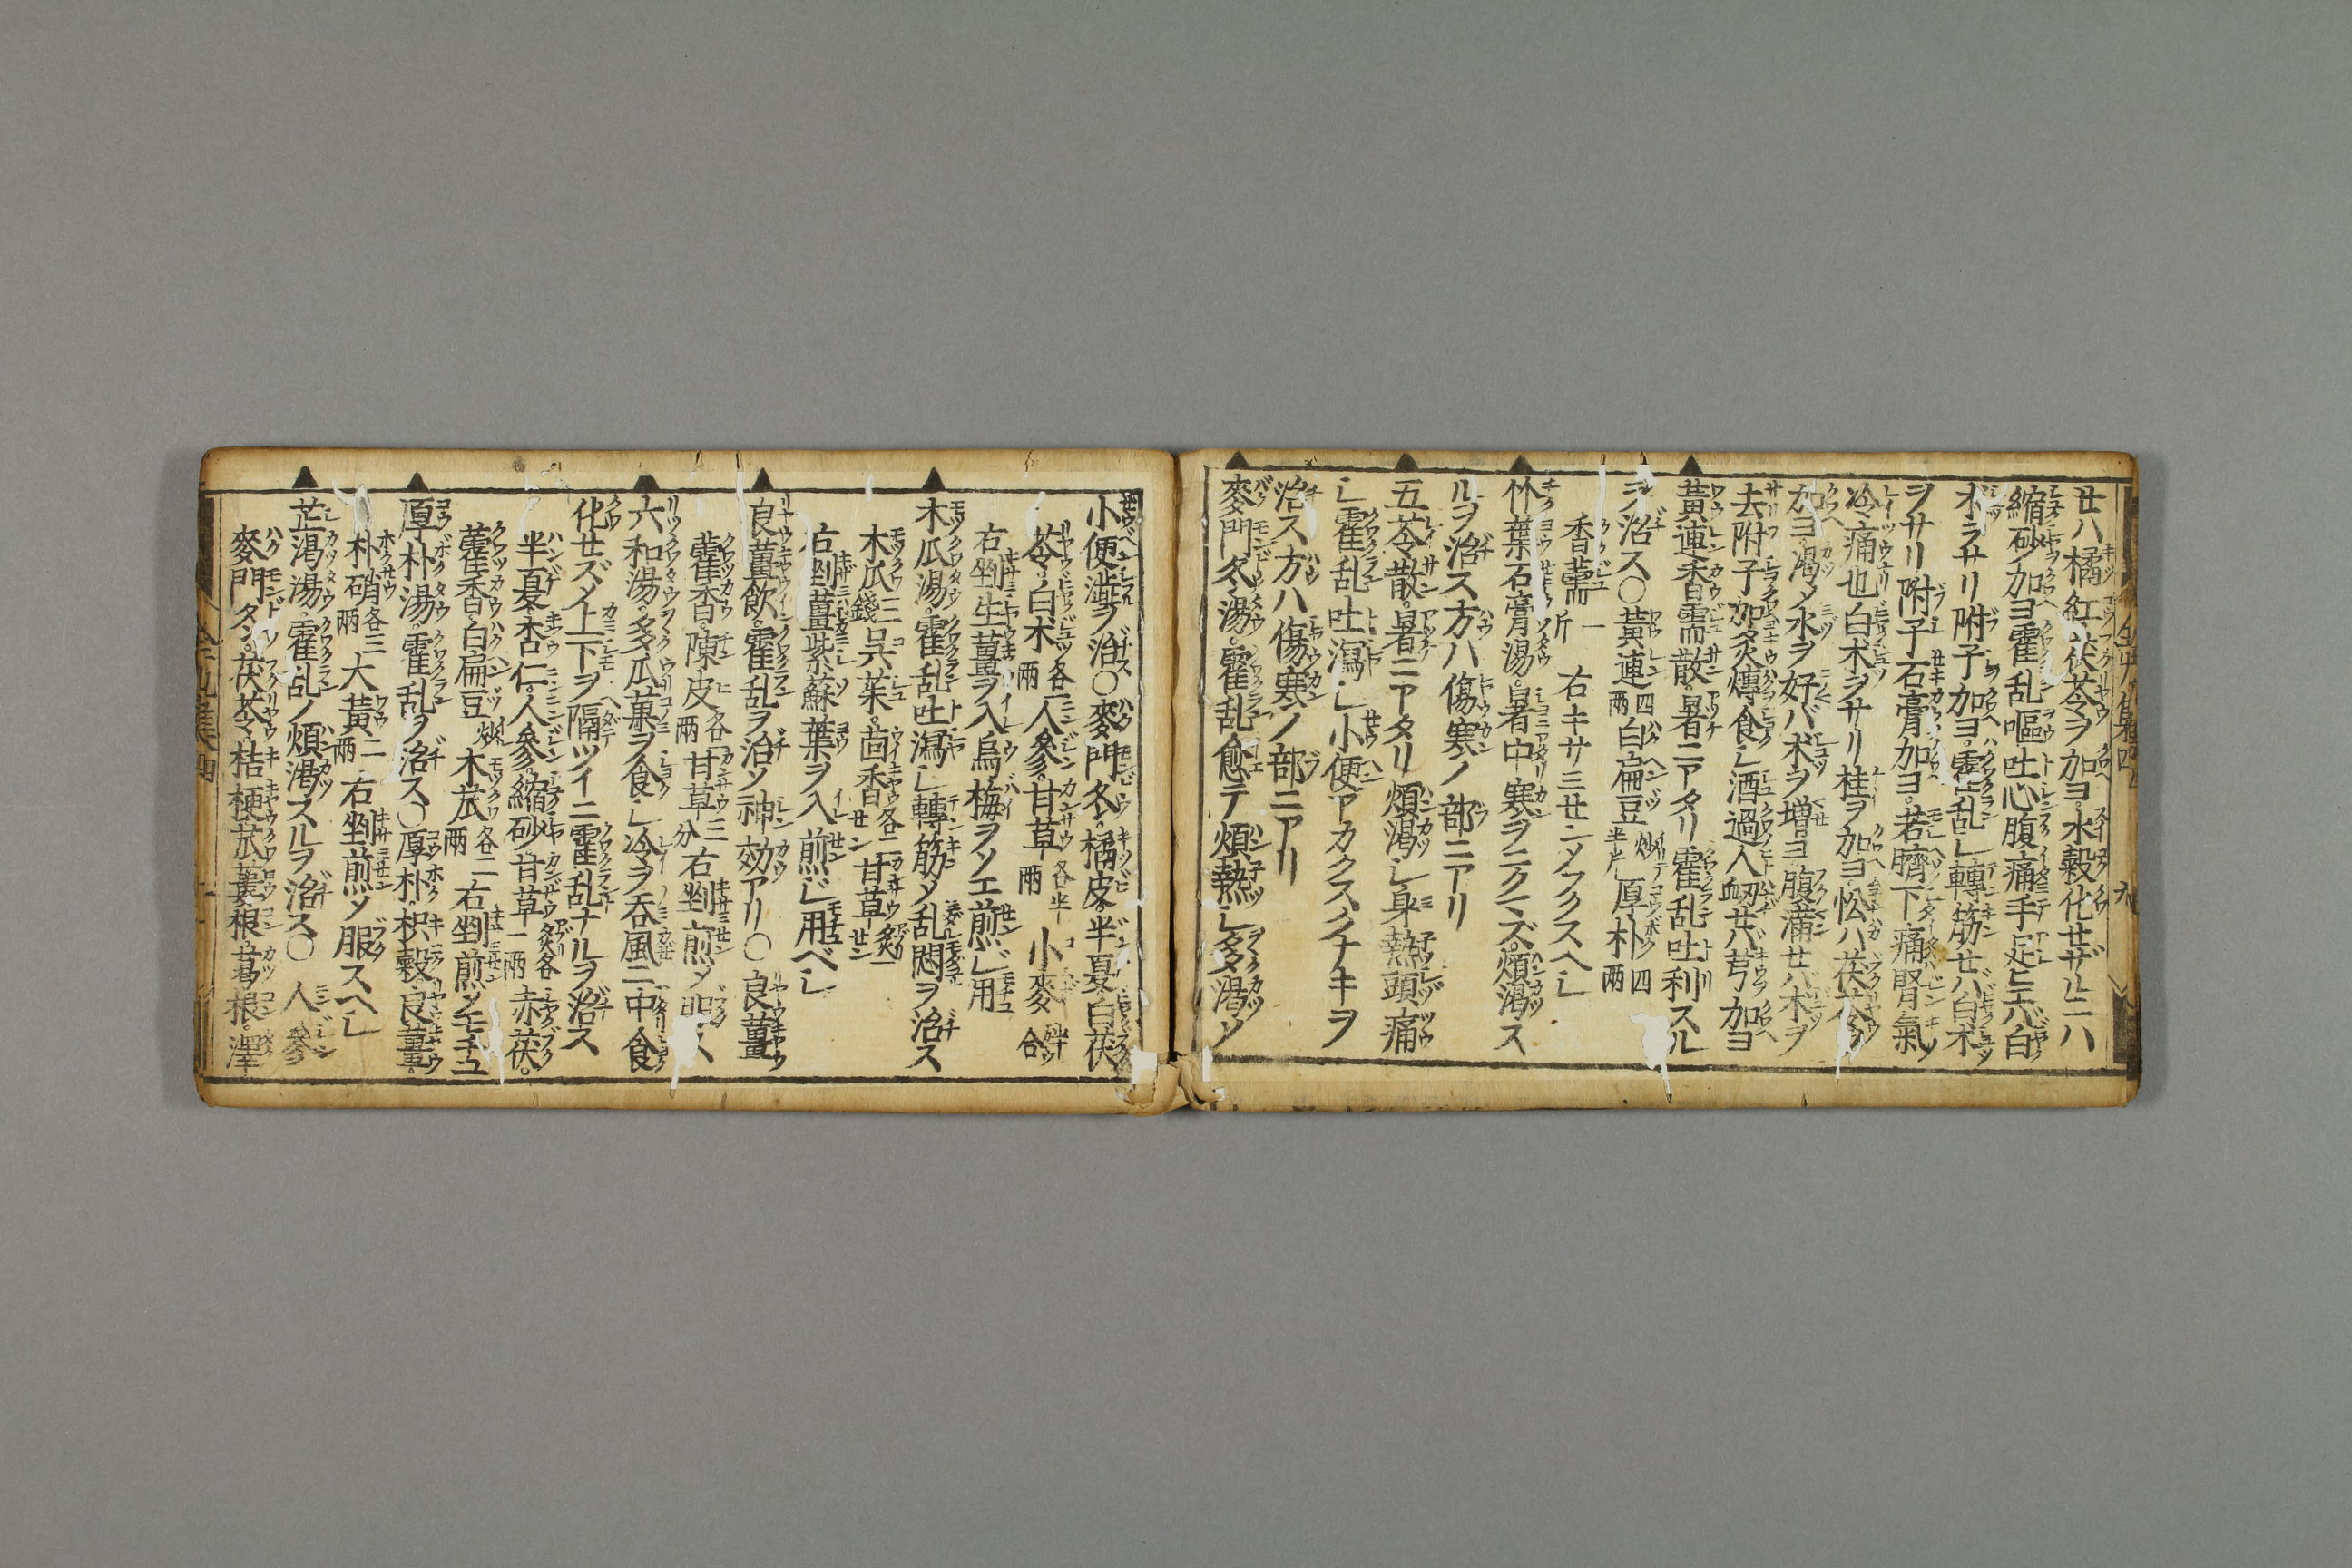 廿ハ橘紅茯苓ヲ加ヨ水穀化セザルニハ
縮砂ヲ加ヨ霍乱嘔吐心腹痛手足ヒヘバ白
朮ヲサリ附子加ヨ霍乱シ轉筋セバ白朮
ヲサリ附子石膏加ヨ若臍下痛腎氣ノ
冷痛也白朮ヲサリ桂ヲ加ヨ悩ハ茯苓
加ヨ渇メ水ヲ好バ朮ヲ増ヨ腹満セバ朮ヲ
去附子加炙煿食シ酒過人衂セバ芎加ヨ
黄連香薷散暑ニアタリ霍乱吐利スル
ヲ治ス〇黄連四兩白扁豆炒半斤厚朴四兩
香薷一斤右キサミセンメフクスヘシ
竹葉石膏湯暑中寒ヲニクマズ煩渇ス
ルヲ治ス方ハ傷寒ノ部ニアリ
五苓散暑ニアタリ煩渇シ身熱頭痛
シ霍乱吐瀉シ小便アカクスクナキヲ
治ス方ハ傷寒ノ部ニアリ
麥門冬湯霍乱愈テ煩熱シ多渇ソ
小便澁ヲ治〇麥門冬橘皮半夏白茯
苓白朮各二兩人參甘草各半兩小麥半合
右剉生薑ヲ入烏梅ヲソエ煎じ用
木瓜湯霍乱吐瀉シ轉筋メ乱悶ヲ治ス
木瓜三錢呉茱茴香各二セン甘草炙一セン
右剉薑紫蘇葉ヲ入煎じ用べし
良薑飲霍乱ヲ治ソ神効アリ〇良薑
藿香陳皮各兩甘草三分右剉煎メ服ス
六和湯多瓜菓ヲ食シ冷ヲ呑風ニ中食
化セズメ上下ヲ隔ツイニ霍乱ナルヲ治ス
半夏杏仁人參縮砂甘草炙各一兩赤茯
藿香白扁豆炒木瓜各二兩右剉煎メモチユ
厚朴湯霍乱ヲ治ス〇厚朴枳殻良薑
朴硝各三兩大黄二兩右剉煎メ服スヘし
芷渇湯霍乱ノ煩渇スルヲ治ス〇人參
麥門タン茯苓桔梗苽蔞根葛根澤